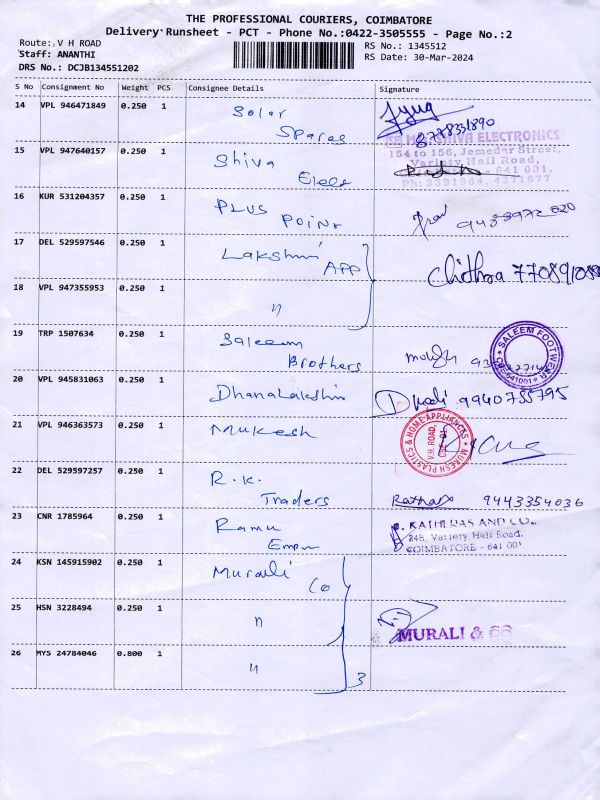 THE PROFESSIONAL COURIERS, COIMBATORE
Delivery Runsheet - PCT - Phone No.:0422-3505555 - Page No.:2
Route: V H ROAD
Staff: ANANTHI
DRS No.: DCJB134551202
RS No.: 1345512
RS Date: 30-Mar-2024
S No Consignment No Weight PCS Consignee Details Signature
14 VPL 946471849 0.250 1 Solar
Spares
8778331890
15 VPL 947640157 0.250 1 Shiva
Elect
SHIVA ELECTRONICS
154 to 156, Jemedar Street,
Variety Hall Road,
- 641 001.
Ph: 2391984, 4371677
16 KUR 531204357 0.250 1 PLUS
POINT
17 DEL 529597546 0.250 1 Lakshmi
APP
Chithra
18 VPL 947355953 0.250 1 "
19 TRP 1507634 0.250 1 Saleem
Brothers
SALEEM FOOTWEAR
CBE-641001
20 VPL 945831063 0.250 1 DhanaLakshm
9940785795
21 VPL 946363573 0.250 1 Mukesh
MUKESH PLASTICS & HOME APPLIANCES
V.H. ROAD,
22 DEL 529597257 0.250 1 R.K.
Traders
9443354036
23 CNR 1785964 0.250 1 Ramu
Empm
P. KATHERAS AND CO.,
248, Variety Hall Road,
COIMBATORE - 641 001
24 KSN 145915902 0.250 1 Murali
Co
25 HSN 3228494 0.250 1 "
MURALI & CO
26 MYS 24784046 0.800 1 "
3